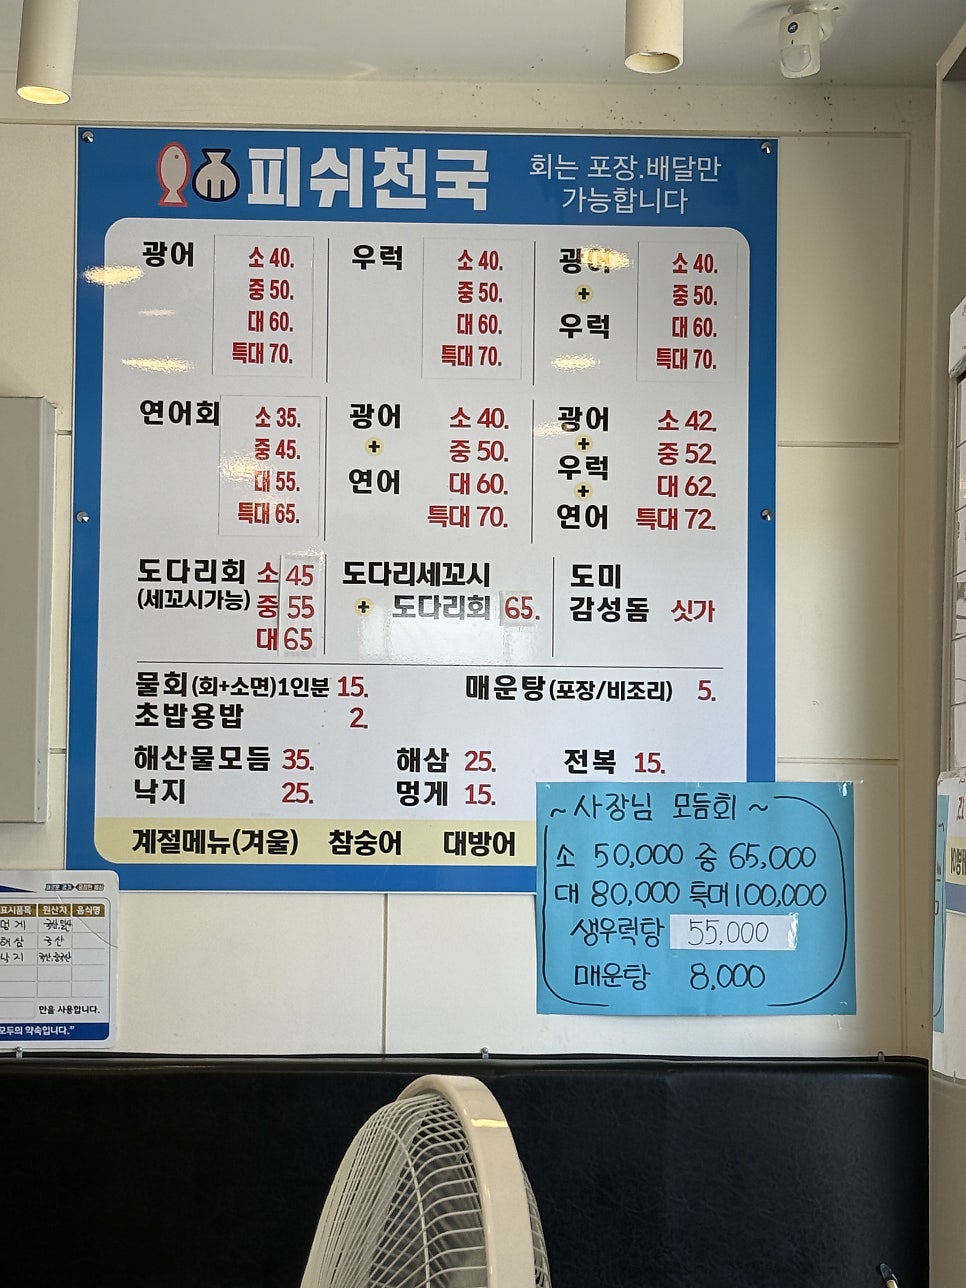 피쉬천국
회는 포장.배달만
가능합니다
광어 소 40.
중 50.
대 60.
특대 70.
우럭 소 40.
중 50.
대 60.
특대 70.
광어 + 우럭 소 40.
중 50.
대 60.
특대 70.
연어회 소 35.
중 45.
대 55.
특대 65.
광어 + 연어 소 40.
중 50.
대 60.
특대 70.
광어 + 우럭 + 연어 소 42.
중 52.
대 62.
특대 72.
도다리회 소 45
(세꼬시가능) 중 55
대 65
도다리세꼬시
+ 도다리회 65.
도미
감성돔 싯가
물회(회+소면)1인분 15. 매운탕(포장/비조리) 5.
초밥용밥 2.
해산물모듬 35. 해삼 25. 전복 15.
낙지 25. 멍게 15.
계절메뉴(겨울) 참숭어 대방어
~ 사장님 모듬회 ~
소 50,000 중 65,000
대 80,000 특대 100,000
생우럭탕 55,000
매운탕 8,000
표시품목 원산지 음식명
멍게
해삼 국산
낙지
만을 사용합니다.
모두의 약속입니다."